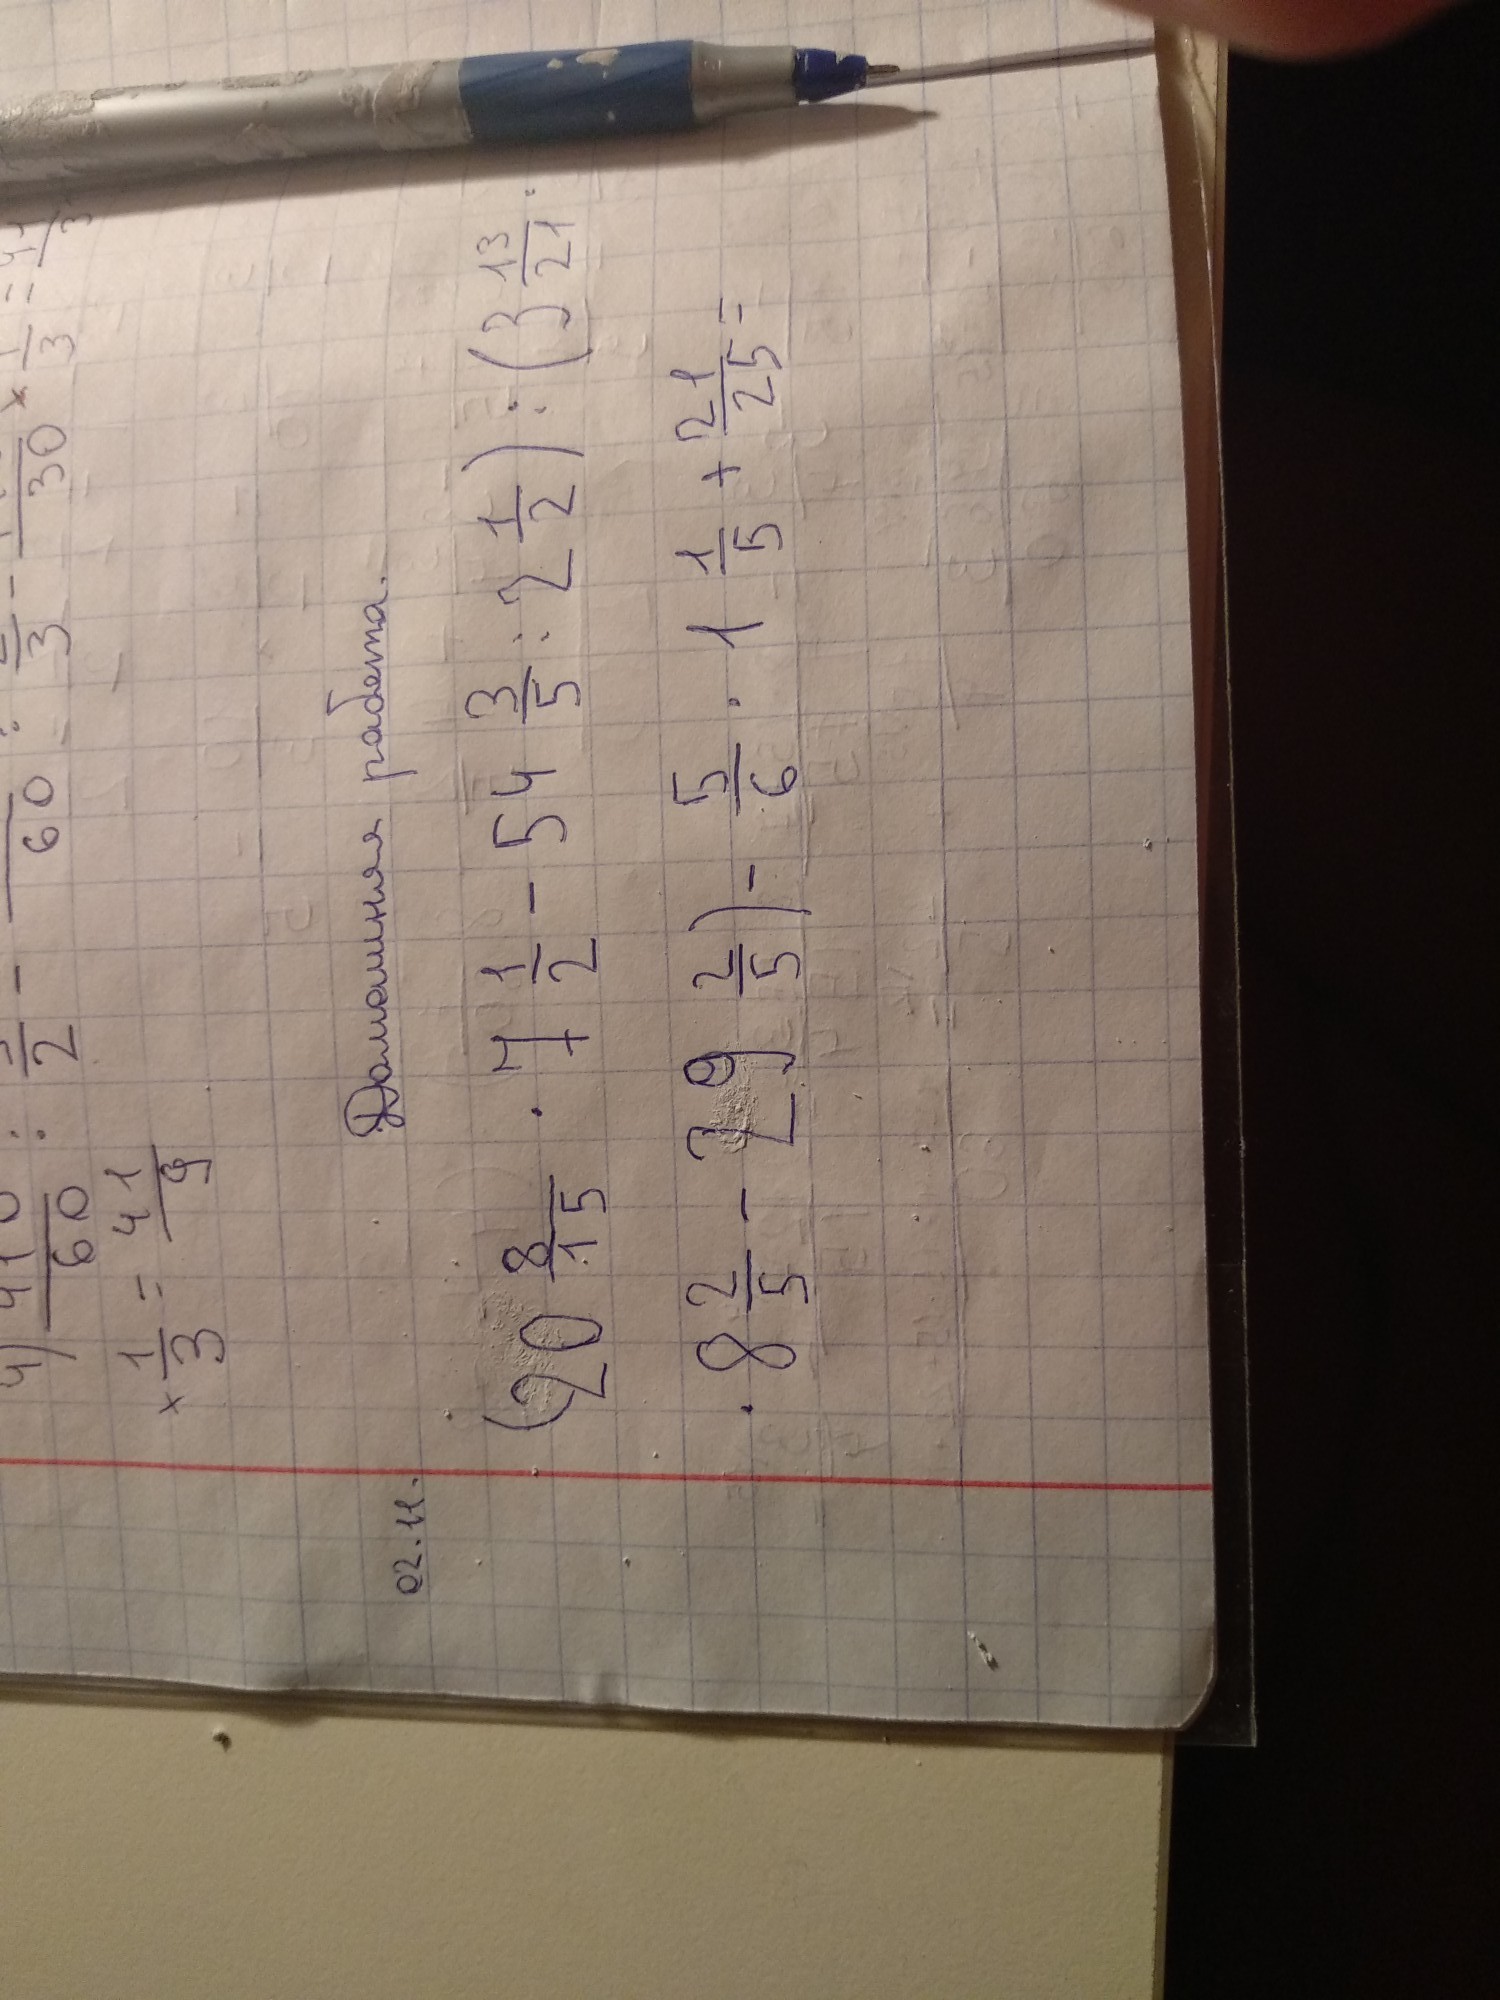 4) 410/60 :
× 1/3 = 41/9
02.11. Домашняя работа.
(20 8/15 · 7 1/2 - 54 3/5 : 2 1/2) : (3 13/21 ·
· 8 2/5 - 29 2/5) - 5/6 · 1 1/5 + 21/25 =